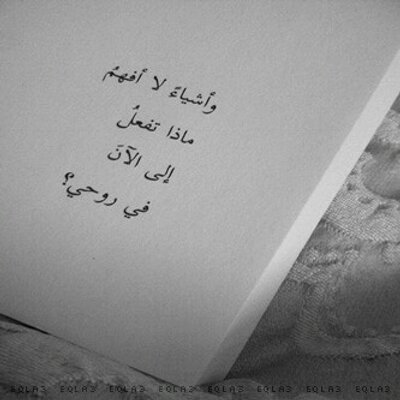 وأشياءً لا أفهمُ
ماذا تفعلُ
إلى الآنَ
في روحي؟
EQLA3 EQLA3 EQLA3 EQLA3 EQLA3 EQLA3 EQLA3 EQLA3